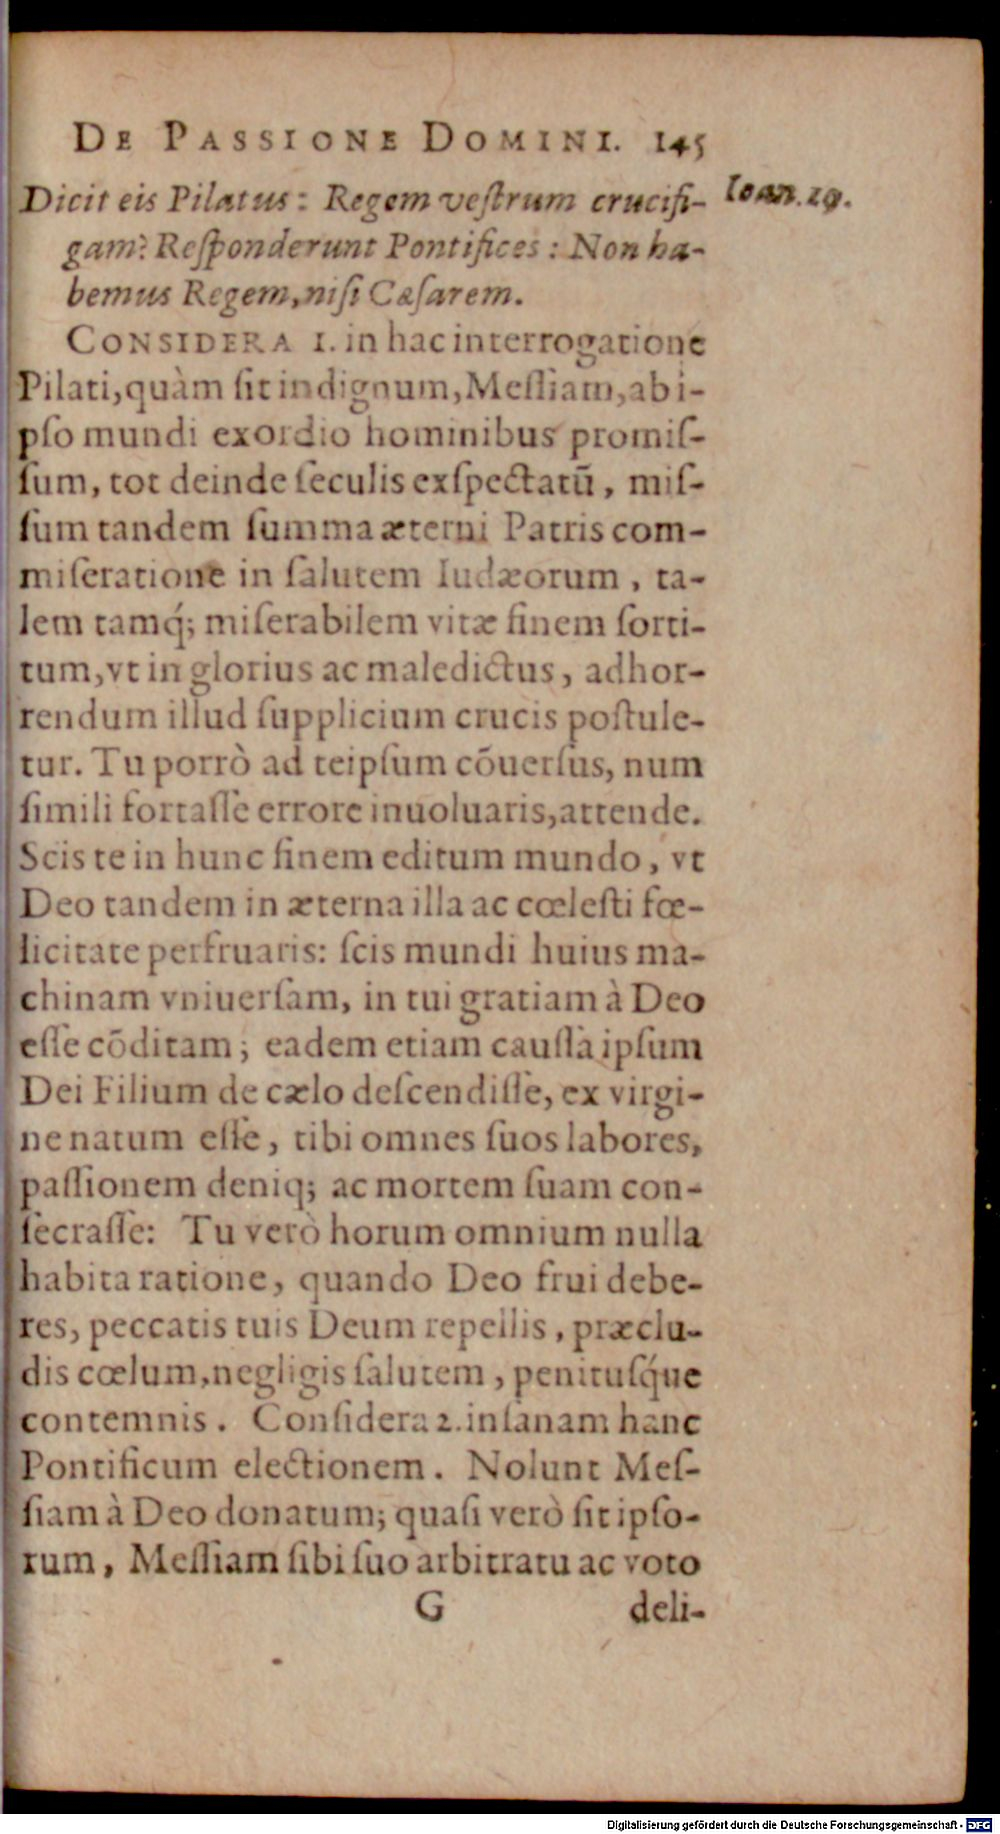 DE PASSIONE DOMINI. 145
Dicit eis Pilatus: Regem veſtrum crucifi- Ioan. 19.
gam? Reſponderunt Pontifices: Non ha-
bemus Regem, niſi Cæſarem.
CONSIDERA 1. in hac interrogatione
Pilati, quàm ſit indignum, Meſſiam, ab i-
pſo mundi exordio hominibus promiſ-
ſum, tot deinde ſeculis exſpectatū, miſ-
ſum tandem ſumma æterni Patris com-
miſeratione in ſalutem Iudæorum, ta-
lem tamq́; miſerabilem vitæ finem ſorti-
tum, vt in glorius ac maledictus, ad hor-
rendum illud ſupplicium crucis poſtule-
tur. Tu porrò ad teipſum cōuerſus, num
ſimili fortaſſe errore inuoluaris, attende.
Scis te in hunc finem editum mundo, vt
Deo tandem in æterna illa ac cœleſti fœ-
licitate perfruaris: ſcis mundi huius ma-
chinam vniuerſam, in tui gratiam à Deo
eſſe cōditam; eadem etiam cauſſa ipſum
Dei Filium de cælo deſcendiſſe, ex virgi-
ne natum eſſe, tibi omnes ſuos labores,
paſſionem deniq; ac mortem ſuam con-
ſecraſſe: Tu verò horum omnium nulla
habita ratione, quando Deo frui debe-
res, peccatis tuis Deum repellis, præclu-
dis cœlum, negligis ſalutem, penituſq́ue
contemnis. Conſidera 2. inſanam hanc
Pontificum electionem. Nolunt Meſ-
ſiam à Deo donatum; quaſi verò ſit ipſo-
rum, Meſſiam ſibi ſuo arbitratu ac voto
G deli-
Digitalisierung gefördert durch die Deutsche Forschungsgemeinschaft - DFG